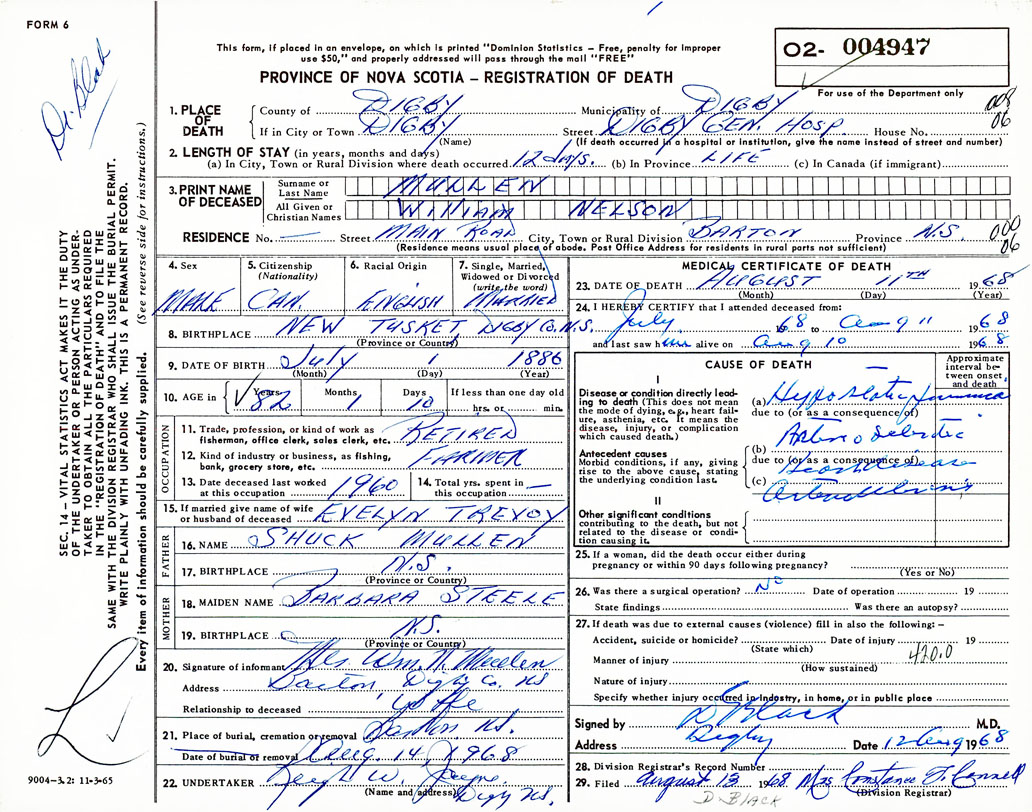 FORM 6
Dr. Black
This form, if placed in an envelope, on which is printed "Dominion Statistics – Free, penalty for improper
use $50," and properly addressed will pass through the mail "FREE"
PROVINCE OF NOVA SCOTIA – REGISTRATION OF DEATH
O2- 004947
For use of the Department only
008
06
1. PLACE OF DEATH
County of DIGBY Municipality of DIGBY
If in City or Town DIGBY Street DIGBY GEN. HOSP. House No.
(Name) (If death occurred in a hospital or institution, give the name instead of street and number)
2. LENGTH OF STAY (in years, months and days)
(a) In City, Town or Rural Division where death occurred 12 days. (b) In Province LIFE (c) In Canada (if immigrant)
3. PRINT NAME OF DECEASED
Surname or Last Name MULLEN
All Given or Christian Names WILLIAM NELSON
RESIDENCE No. — Street MAIN ROAD City, Town or Rural Division BARTON Province N.S.
000
06
(Residence means usual place of abode. Post Office Address for residents in rural parts not sufficient)
4. Sex MALE
5. Citizenship (Nationality) CAN.
6. Racial Origin ENGLISH
7. Single, Married, Widowed or Divorced (write the word) MARRIED
8. BIRTHPLACE NEW TUSKET, DIGBY CO. N.S.
(Province or Country)
9. DATE OF BIRTH July 1 1886
(Month) (Day) (Year)
10. AGE in Years 82 Months 1 Days 10 If less than one day old hrs. or min.
OCCUPATION
11. Trade, profession, or kind of work as fisherman, office clerk, sales clerk, etc. RETIRED
12. Kind of industry or business, as fishing, bank, grocery store, etc. FARMER
13. Date deceased last worked at this occupation 1960
14. Total yrs. spent in this occupation —
15. If married give name of wife or husband of deceased EVELYN TREVOY
FATHER
16. NAME SHUCK MULLEN
17. BIRTHPLACE N.S.
(Province or Country)
MOTHER
18. MAIDEN NAME BARBARA STEELE
19. BIRTHPLACE N.S.
(Province or Country)
20. Signature of informant Mrs Wm. N. Mullen
Address Barton, Digby Co. NS
Relationship to deceased wife
21. Place of burial, cremation or removal Barton NS.
Date of burial or removal Aug. 14, 1968
22. UNDERTAKER W. Jayne
(Name and address) Digby NS.
MEDICAL CERTIFICATE OF DEATH
23. DATE OF DEATH AUGUST 11TH 1968
(Month) (Day) (Year)
24. I HEREBY CERTIFY that I attended deceased from:
July 1968 to Aug 11 1968
and last saw him alive on Aug 10 1968
CAUSE OF DEATH
Approximate interval between onset and death
I
Disease or condition directly leading to death (This does not mean the mode of dying, e.g., heart failure, asthenia, etc. It means the disease, injury, or complication which caused death.)
(a) Hypostatic Pneumonia
due to (or as a consequence of)
Antecedent causes
Morbid conditions, if any, giving rise to the above cause, stating the underlying condition last.
(b) Arteriosclerotic
due to (or as a consequence of)
Heart disease
(c) Arteriosclerosis
II
Other significant conditions contributing to the death, but not related to the disease or condition causing it.
25. If a woman, did the death occur either during pregnancy or within 90 days following pregnancy?
(Yes or No)
26. Was there a surgical operation? No Date of operation 19
State findings Was there an autopsy?
27. If death was due to external causes (violence) fill in also the following: –
Accident, suicide or homicide? Date of injury 19
(State which)
Manner of injury 420.0
(How sustained)
Nature of injury
Specify whether injury occurred in industry, in home, or in public place
Signed by D Black M.D.
Address Digby Date 12 Aug 1968
28. Division Registrar's Record Number
29. Filed August 13 1968 Mrs Constance F. Connell
(Division Registrar)
D. BLACK
SEC. 14 – VITAL STATISTICS ACT MAKES IT THE DUTY
OF THE UNDERTAKER OR PERSON ACTING AS UNDER-
TAKER TO OBTAIN ALL THE PARTICULARS REQUIRED
IN THE "REGISTRATION OF DEATH" AND TO FILE THE
SAME WITH THE DIVISION REGISTRAR WHO SHALL ISSUE THE BURIAL PERMIT.
WRITE PLAINLY WITH UNFADING INK. THIS IS A PERMANENT RECORD.
Every item of information should be carefully supplied. (See reverse side for instructions.)
9004-3.2: 11-3-65